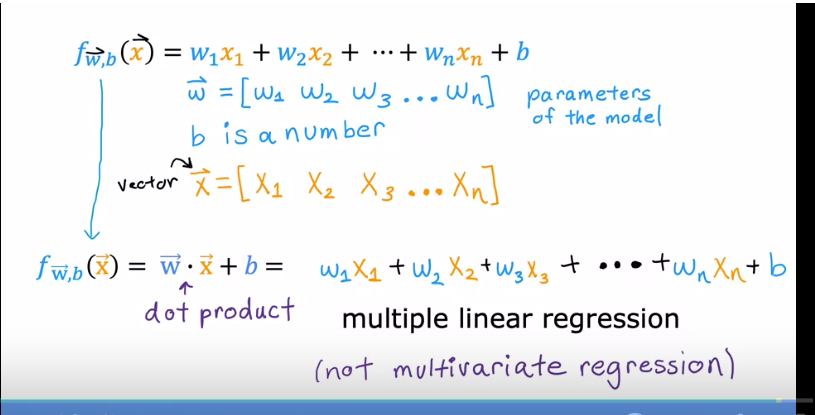 f_{w⃗,b}(x⃗) = w₁x₁ + w₂x₂ + ⋯ + wₙxₙ + b
w⃗ = [w₁ w₂ w₃ ... wₙ] parameters
of the model
b is a number
vector x⃗ = [x₁ x₂ x₃ ... xₙ]
f_{w⃗,b}(x⃗) = w⃗ · x⃗ + b = w₁x₁ + w₂x₂ + w₃x₃ + ... + wₙxₙ + b
dot product
multiple linear regression
(not multivariate regression)